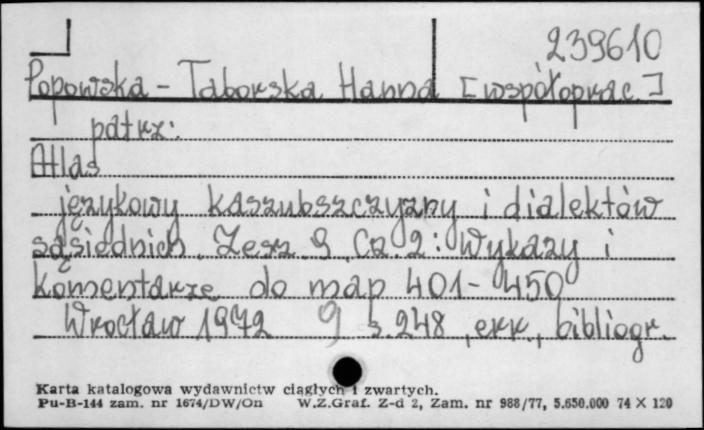 239610
Popowska-Taborska Hanna [współoprac.]
patrz:
Atlas
językowy kaszubszczyzny i dialektów
sąsiednich. Zesz. 9 Cz. 2: Wykazy i
komentarze do map 401-450
Wrocław 1972 s. 248, err., bibliogr.
Karta katalogowa wydawnictw ciągłych i zwartych.
Pu-B-144 zam. nr 1674/DW/On W.Z.Graf. Z-d 2, Zam. nr 988/77, 5.650.000 74 X 120